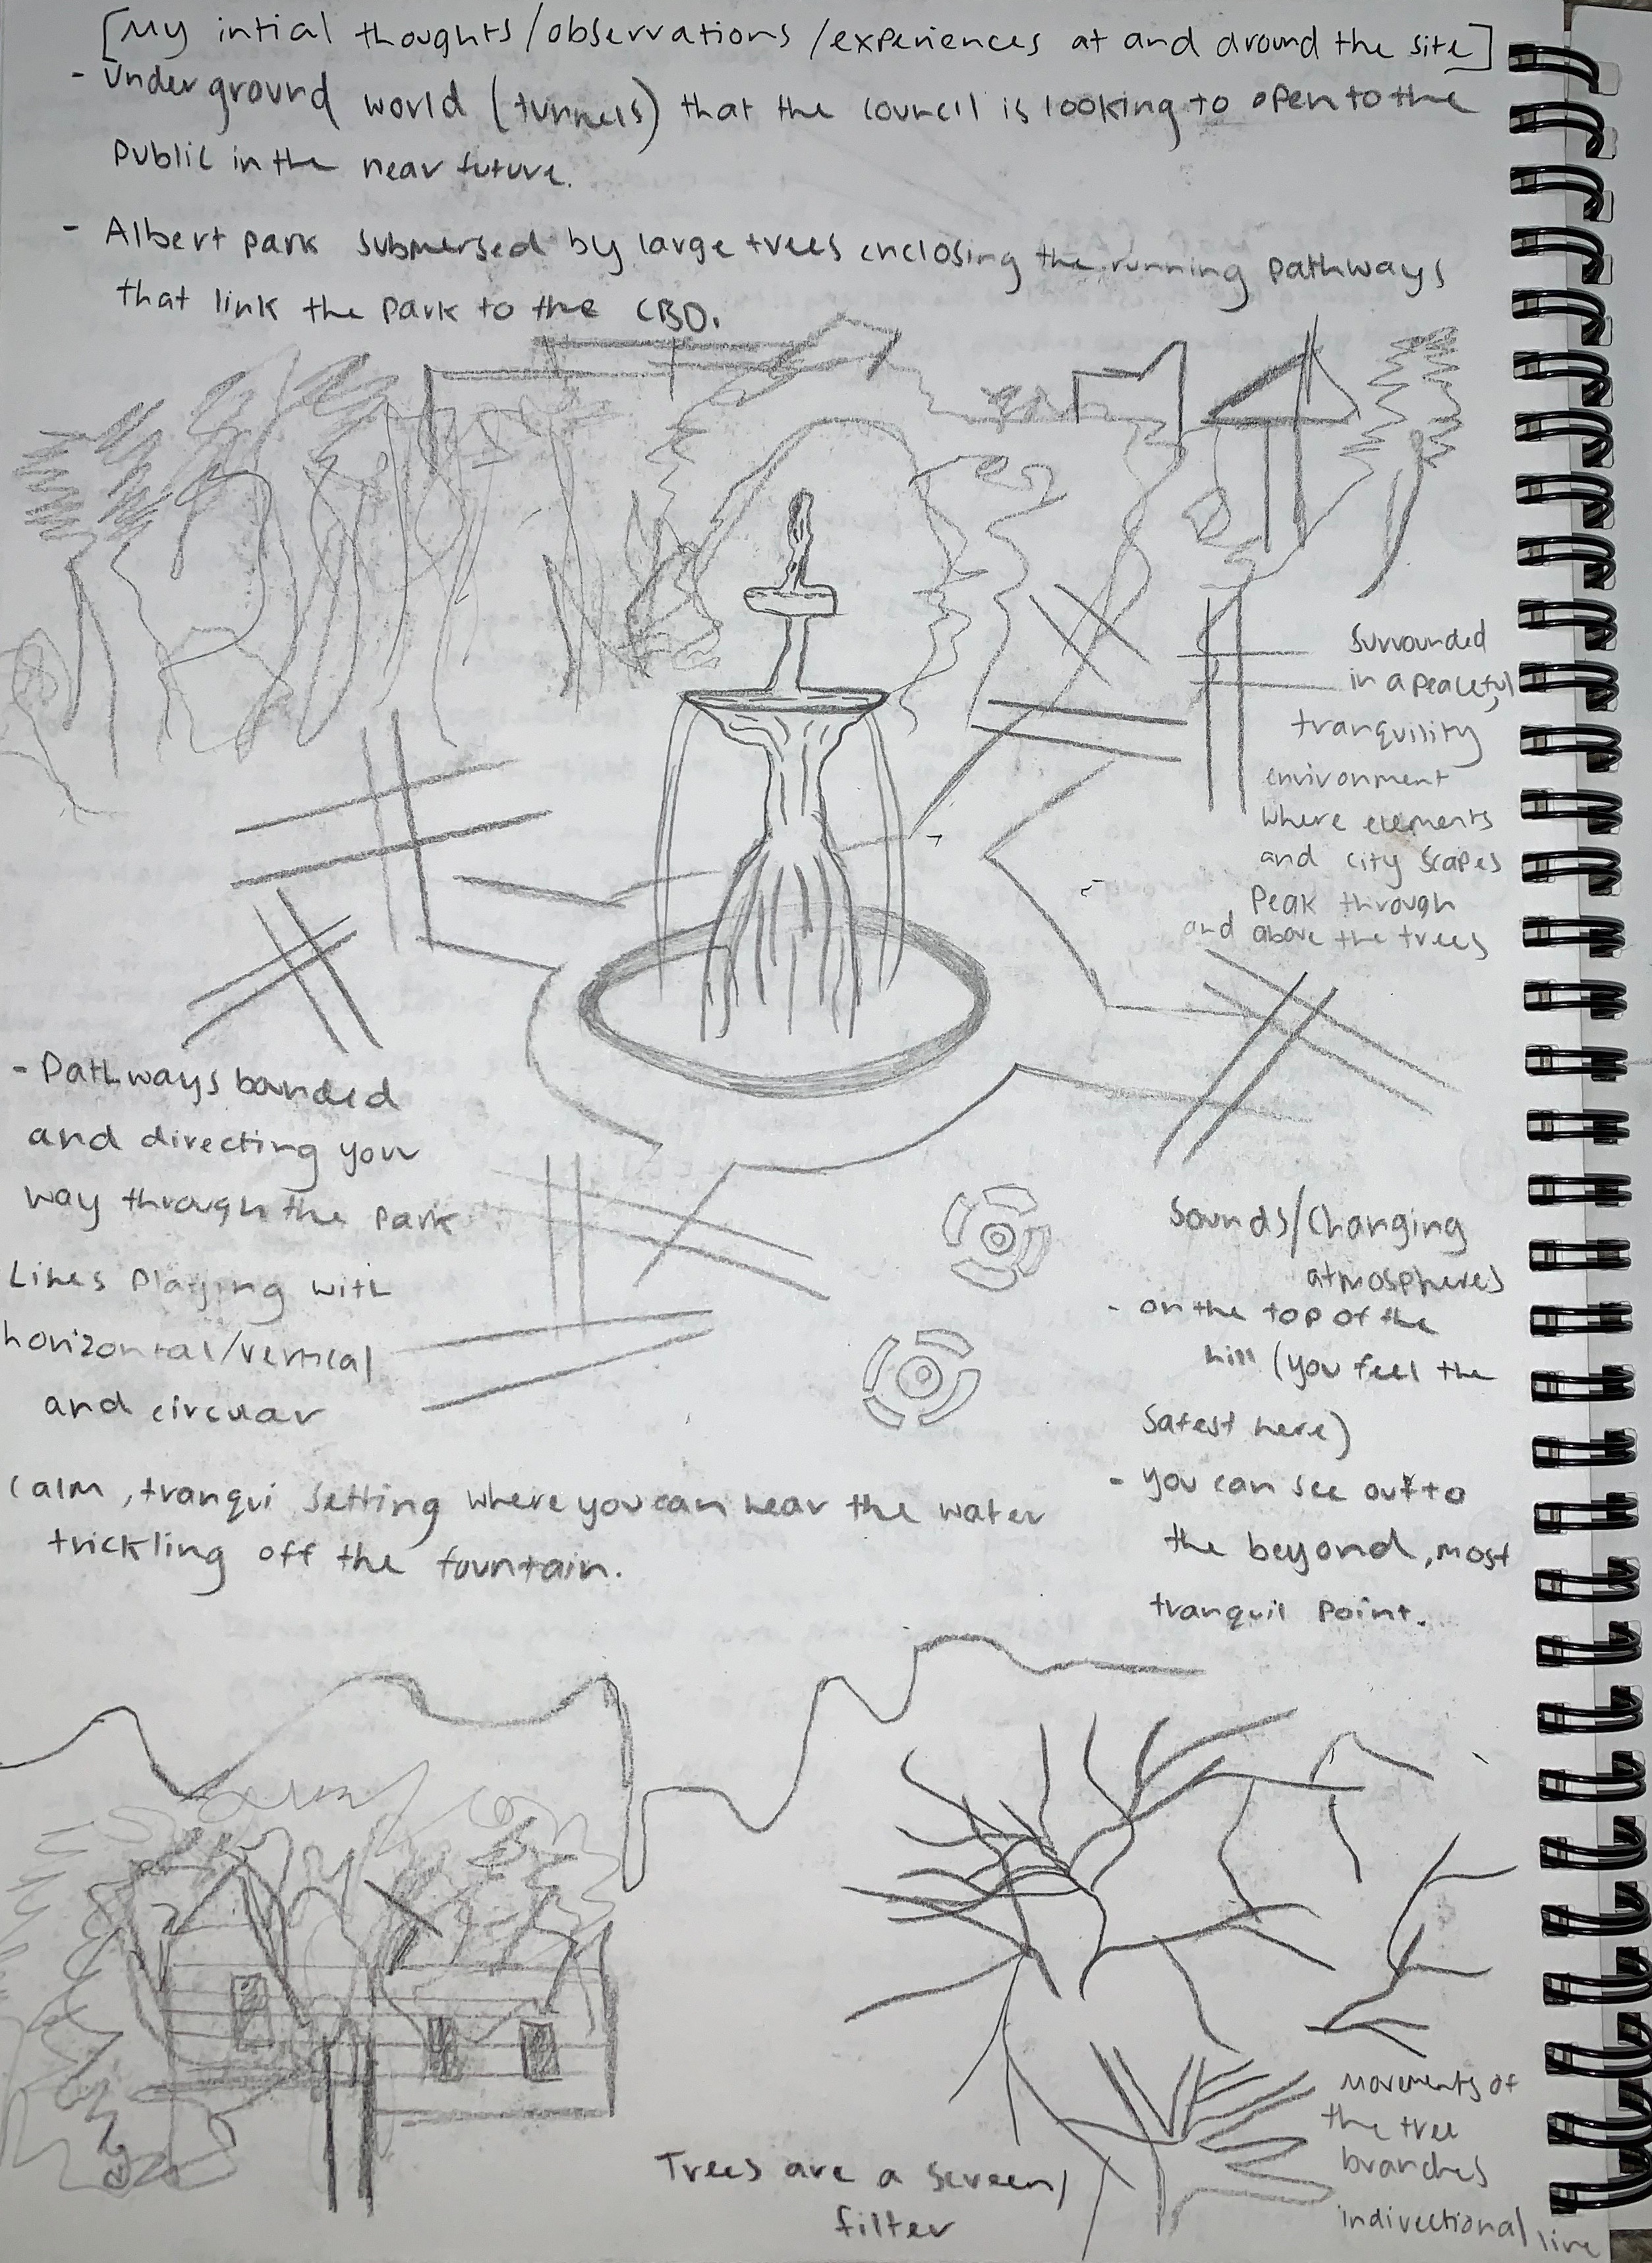 [My intial thoughts/observations/experiences at and around the site]
- Underground world (tunnels) that the council is looking to open to the
public in the near future.
- Albert park submersed by large trees enclosing the running pathways
that link the park to the CBD.
surrounded
in a peaceful,
tranquility
environment
where elements
and city scapes
peak through
and above the trees
- Pathways banded
and directing your
way through the park
Lines playing with
horizontal/vertical
and circular
Calm, tranqui setting where you can hear the water
trickling off the fountain.
Sounds/Changing
atmospheres
- on the top of the
hill (you feel the
safest here)
- you can see out to
the beyond, most
tranquil point.
Trees are a screen/
filter
movements of
the tree
branches
indirectional line